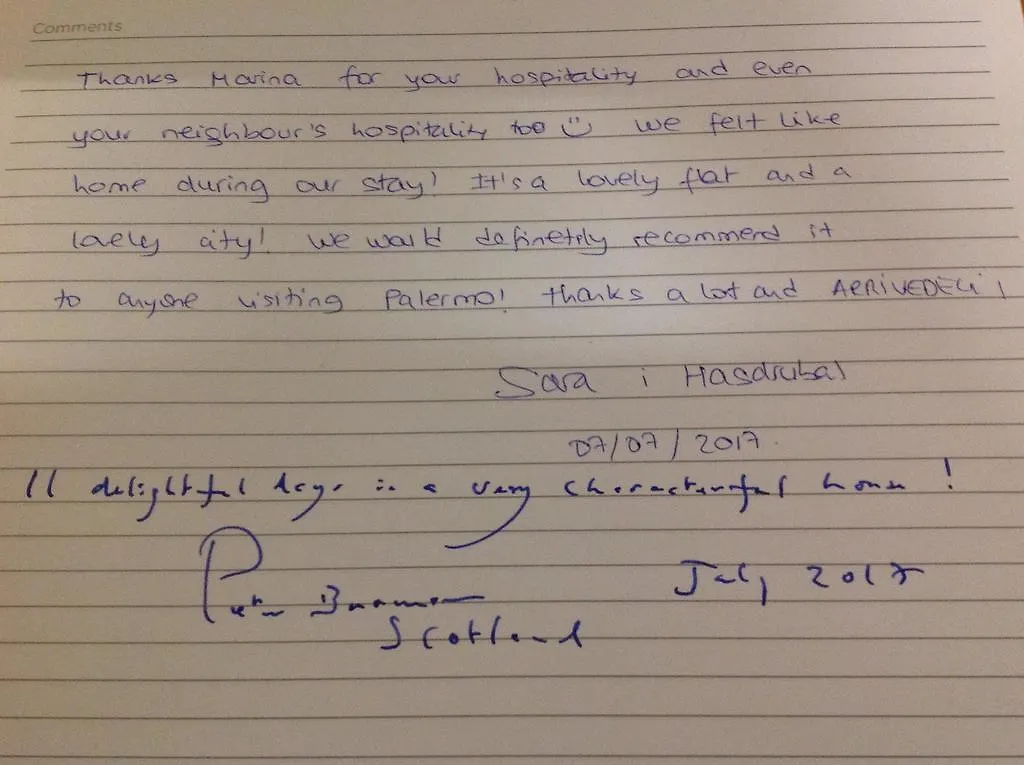 Comments
Thanks Marina for your hospitality and even
your neighbour's hospitality too We felt like
home during our stay! It's a lovely flat and a
lovely city! We would definetely recommend it
to anyone visiting Palermo! Thanks a lot and ARRIVEDECI!
Sara i Hasdrubal
07/07/2017.
11 delightful days in a very characterful house!
Peter
Scotland
July 2017